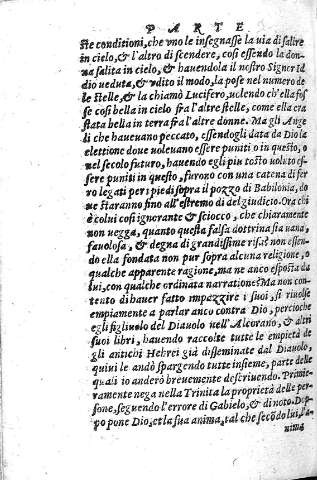 PARTE
ste conditioni, che uno le insegnasse la uia di salire
in cielo, & l'altro di scendere, così essendo la don-
na salita in cielo, & hauendola il nostro Signer Id
dio ueduta, & udito il modo, la pose nel numero de
le stelle, & la chiamò Lucifero, uolendo ch'ella fos
se così bella in cielo fra l'altre stelle, come ella era
stata bella in terra fra l'altre donne. Ma gli Ange
li che haueuano peccato, essendogli data da Dio la
elettione doue uoleuano essere puniti o in questo, o
nel secolo futuro, hauendo egli piu tosto uoluto es-
sere puniti in questo, furono con una catena di fer
ro legati per i piedi sopra il pozzo di Babilonia, do
ue staranno fino all'estremo dì del giudicio. Ora chi
è colui così ignorante & sciocco, che chiaramente
non uegga, quanto questa falsa dottrina sia uana,
fauolosa, & degna di grandissime risa? non essen-
do ella fondata non pur sopra alcuna religione, o
qualche apparente ragione, ma ne anco esposta da
lui, con qualche ordinata narratione? Ma non con-
tento di hauer fatto impazzire i suoi, si riuolse
empiamente a parlar anco contra Dio, percioche
egli figliuolo del Diauolo nell'Alcorano, & altri
suoi libri, hauendo raccolte tutte le empietà de
gli antichi Hebrei già disseminate dal Diauolo,
quiui le andò spargendo tutte insieme, parte delle
quali io anderò breuemente descriuendo. Primie-
ramente nega nella Trinita la proprietà delle per-
sone, seguendo l'errore di Gabielo, & di noto. Do-
po pone Dio, et la sua anima, tal che secõdo lui, l'a-
nima